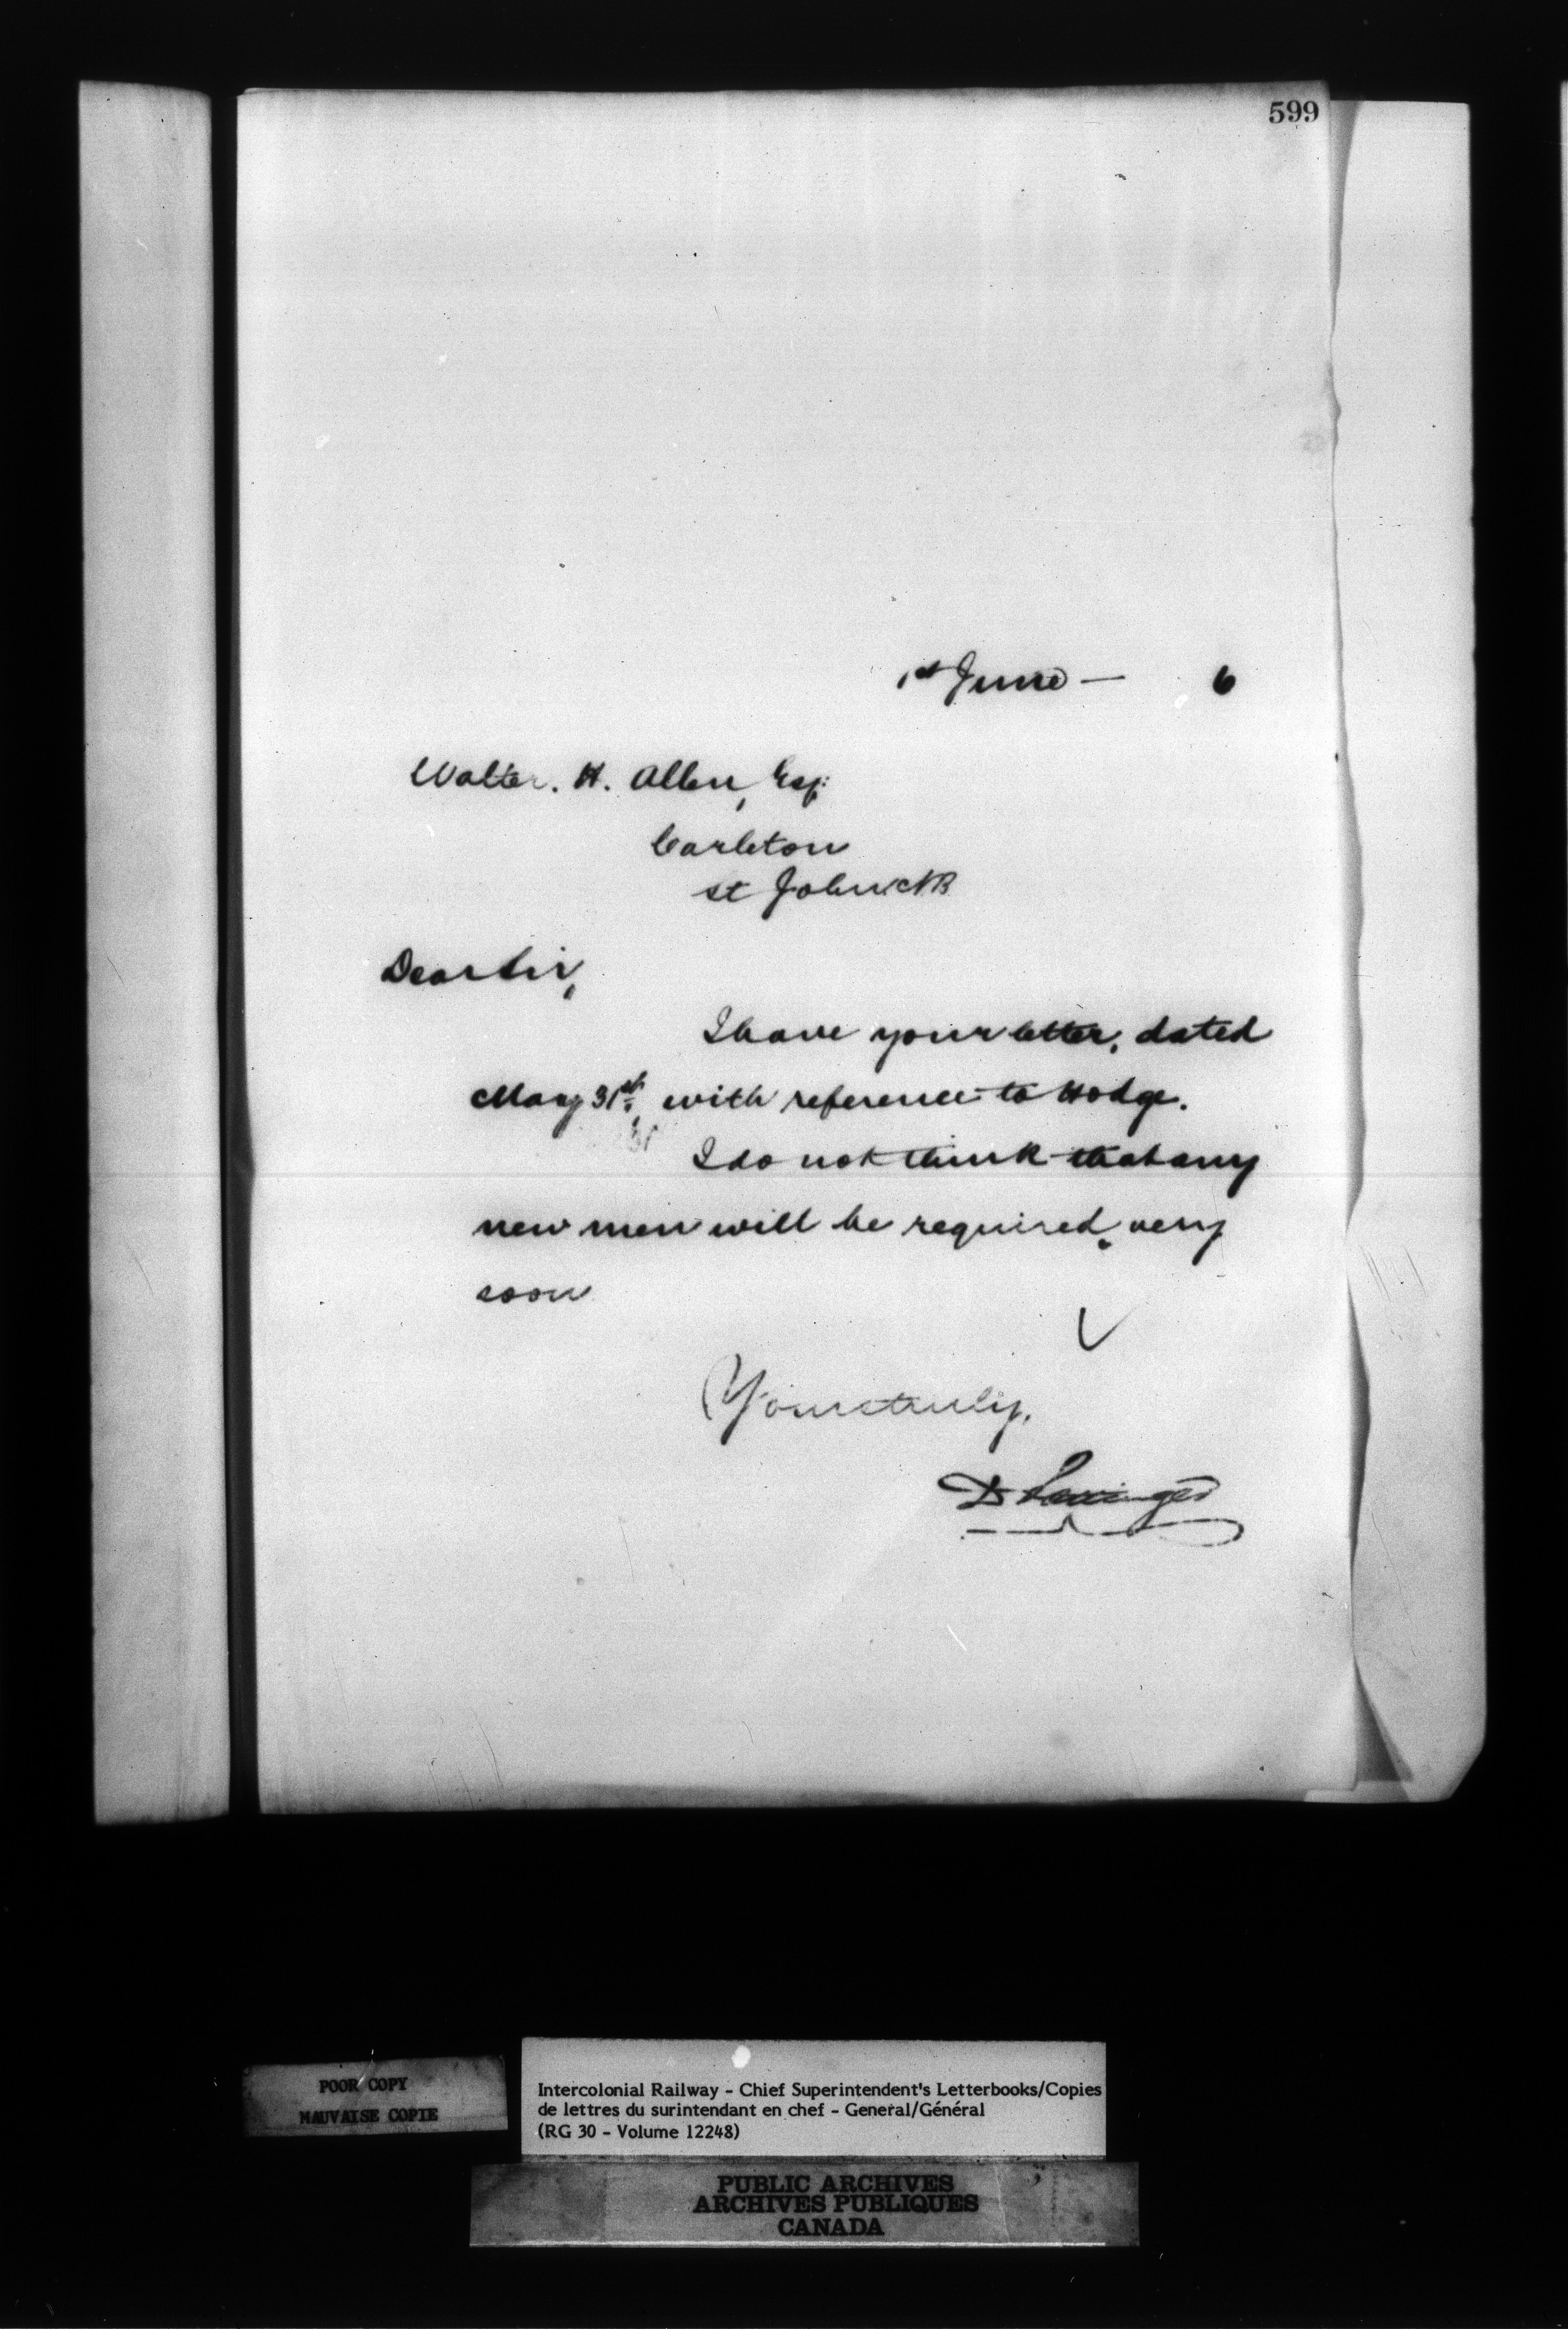 599
1st June — 6
Walter. H. Allen, Esq:
Carleton
St John NB
Dear Sir,
I have your letter, dated
May 31st, with reference to Hodge.
I do not think that any
new men will be required very
soon
Yours truly,
D Pottinger
POOR COPY
MAUVAISE COPIE
Intercolonial Railway - Chief Superintendent's Letterbooks/Copies
de lettres du surintendant en chef - General/Général
(RG 30 - Volume 12248)
PUBLIC ARCHIVES
ARCHIVES PUBLIQUES
CANADA